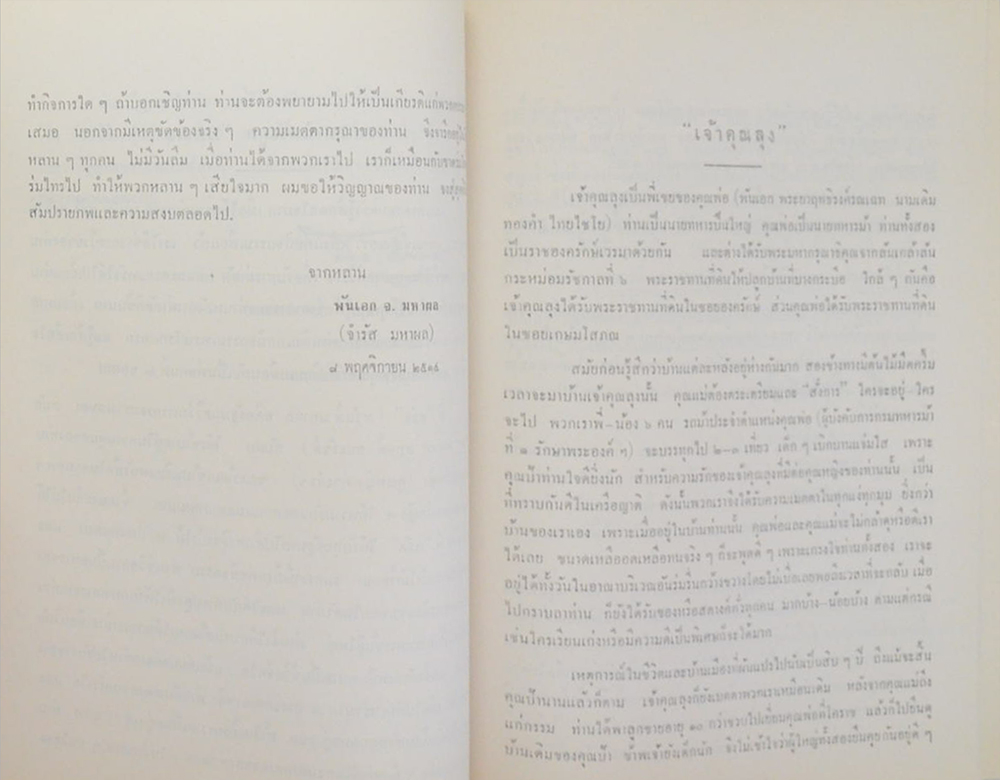 ทำกิจการใด ๆ ถ้าบอกเชิญท่าน ท่านจะต้องพยายามไปให้เป็นเกียรติแก่พวก
เสมอ นอกจากมีเหตุขัดข้องจริง ๆ ความเมตตากรุณาของท่าน
หลาน ๆ ทุกคน ไม่มีวันลืม เมื่อท่านได้จากพวกเราไป เราก็เหมือนกับ
ร่มไทรไป ทำให้พวกหลาน ๆ เสียใจมาก ผมขอให้วิญญาณของท่าน
สัมปรายภพและความสงบตลอดไป.
จากหลาน
พันเอก จ. มหาผล
(จำรัส มหาผล)
๘ พฤศจิกายน ๒๕๑๔
“เจ้าคุณลุง”
เจ้าคุณลุงเป็นพี่เขยของคุณพ่อ (พันเอก พระยาฤทธิรงค์รณเฉท นามเดิม
ทองคำ ไทยไชโย) ท่านเป็นนายทหารปืนใหญ่ คุณพ่อเป็นนายทหารม้า ท่านทั้งสอง
เป็นราชองครักษ์เวรมาด้วยกัน และต่างได้รับพระมหากรุณาธิคุณจากล้นเกล้าล้น
กระหม่อมรัชกาลที่ ๖ พระราชทานที่ดินให้ปลูกบ้านที่บางกระบือ ใกล้ ๆ กันคือ
เจ้าคุณลุงได้รับพระราชทานที่ดินในซอยองครักษ์ ส่วนคุณพ่อได้รับพระราชทานที่ดิน
ในซอยเกษมโสภณ
สมัยก่อนรู้สึกว่าบ้านแต่ละหลังอยู่ห่างกันมาก สองข้างทางมีต้นไม้มืดครึ้ม
เวลาจะมาบ้านเจ้าคุณลุงนั้น คุณแม่ต้องตระเตรียมและ “สั่งการ” ใครจะอยู่-ใคร
จะไป พวกเราพี่-น้อง ๖ คน รถม้าประจำตำแหน่งคุณพ่อ (ผู้บังคับการกรมทหารม้า
ที่ ๑ รักษาพระองค์ ฯ) จะบรรทุกไป ๒-๓ เที่ยว เด็ก ๆ เบิกบานแจ่มใส เพราะ
คุณป้าท่านใจดียิ่งนัก สำหรับความรักของเจ้าคุณลุงที่มีต่อคุณหญิงของท่านนั้น เป็น
ที่ทราบกันดีในเครือญาติ ดังนั้นพวกเราจึงได้รับความเมตตาในทุกแง่ทุกมุม ยิ่งกว่า
บ้านของเราเอง เพราะเมื่ออยู่ในบ้านท่านนั้น คุณพ่อและคุณแม่จะไม่กล้าดุหรือตีเรา
ได้เลย ขนาดเหลืออดเหลือทนจริง ๆ ก็จะพูดดี ๆ เพราะเกรงใจท่านทั้งสอง เราจะ
อยู่ได้ทั้งวันในอาณาบริเวณอันร่มรื่นกว้างขวางโดยไม่เบื่อเลยพอถึงเวลาที่จะกลับ เมื่อ
ไปกราบลาท่าน ก็ยังได้รับของหรือสตางค์ทั่วทุกคน มากบ้าง-น้อยบ้าง ตามแต่กรณี
เช่นใครเรียนเก่งหรือมีความดีเป็นพิเศษก็จะได้มาก
เหตุการณ์ในชีวิตและบ้านเมืองที่ผันแปรไปนับเป็นสิบ ๆ ปี ถึงแม้จะสิ้น
คุณป้านานแล้วก็ตาม เจ้าคุณลุงก็ยังเมตตาพวกเราเหมือนเดิม หลังจากคุณแม่ถึง
แก่กรรม ท่านได้พาลูกชายอายุ ๑๐ กว่าขวบไปเยี่ยมคุณพ่อที่โคราช แล้วก็ไปยืนดู
บ้านเดิมของคุณป้า ข้าพเจ้ายังเด็กนัก จึงไม่เข้าใจว่าผู้ใหญ่ทั้งสองยืนคุยกันอยู่ดี ๆ